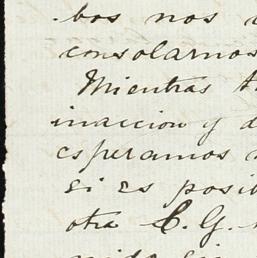 bos nos
consolarnos
Mientras
inaccion y d
esperamos
si es posib
otra C. G.